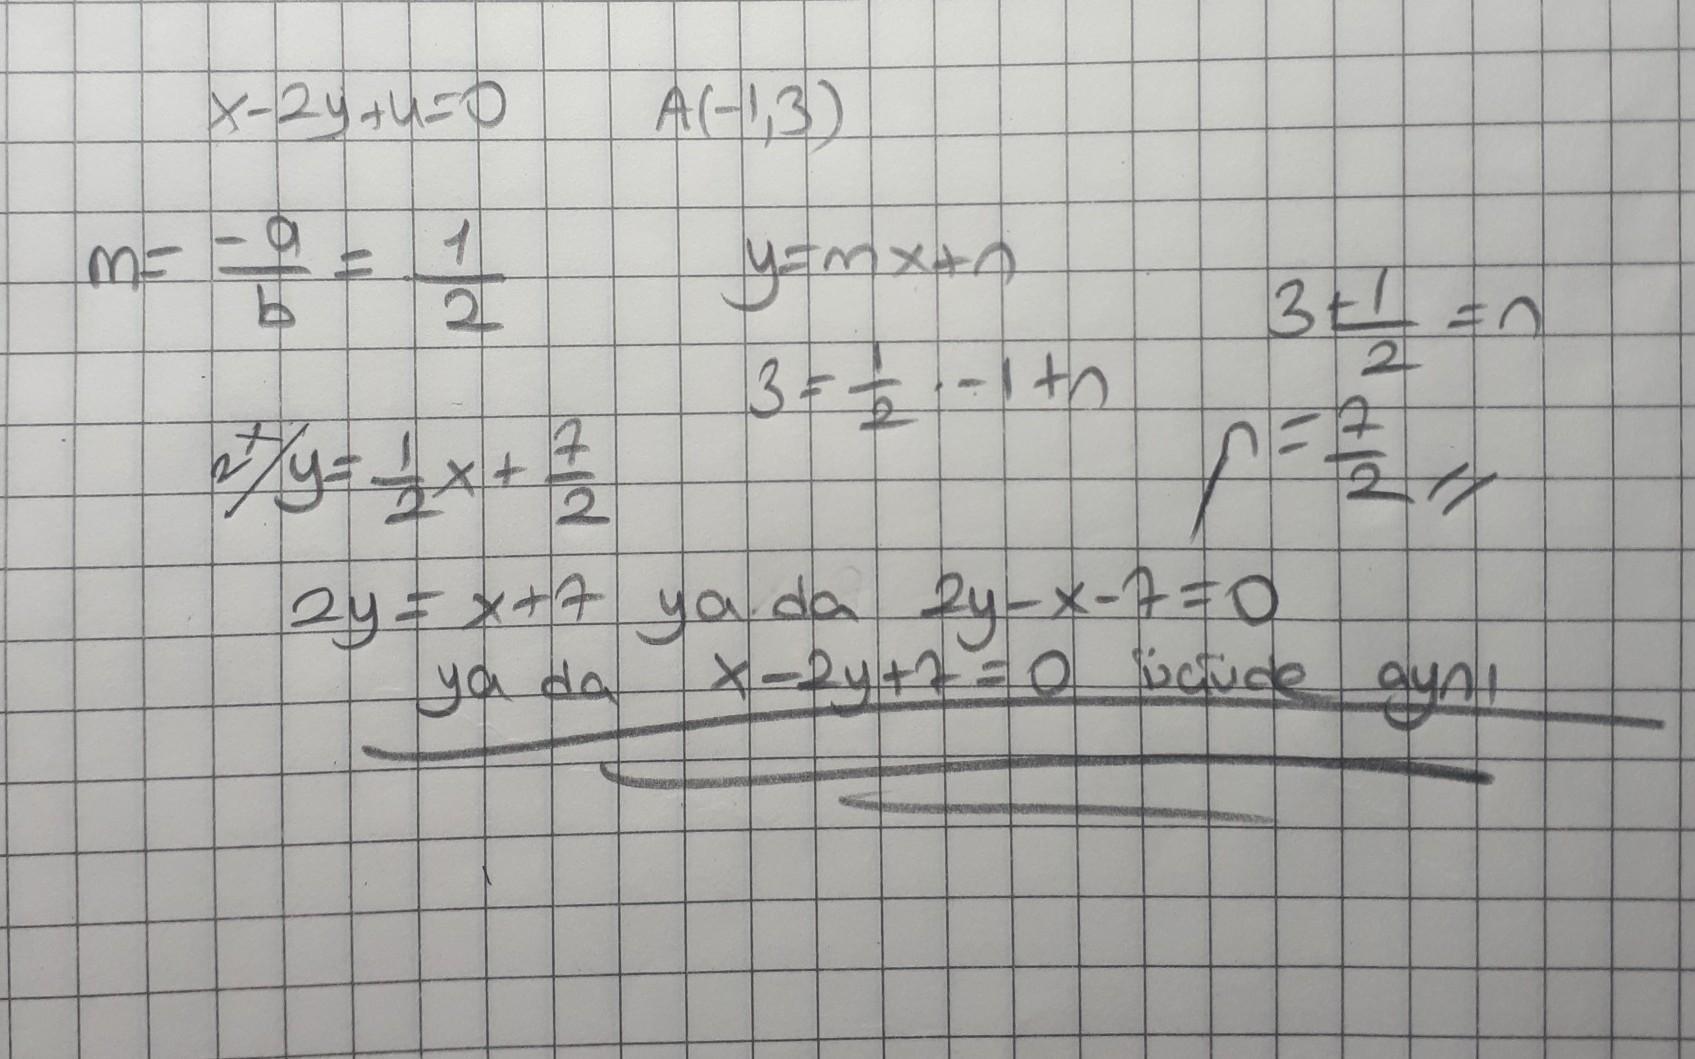 x-2y+4=0 A(-1,3)
m= -a/b = 1/2
y=mx+n
3 = 1/2 · -1+n
3+1/2 = n
n = 7/2 //
2/ y= 1/2 x + 7/2
2y = x+7 ya da 2y-x-7=0
ya da x-2y+7=0 üçüde aynı